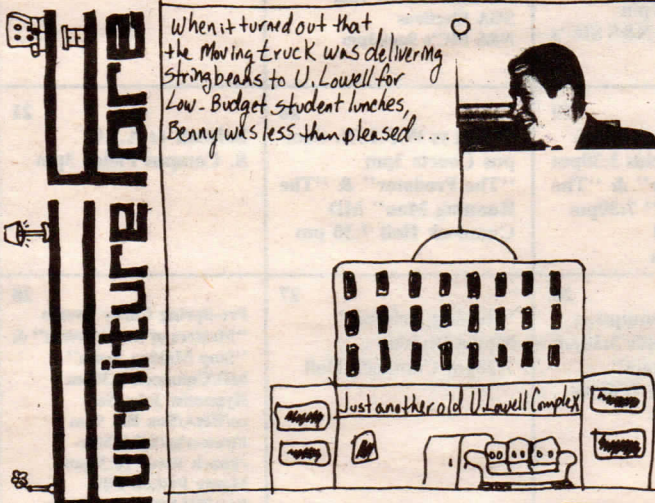 Furniture Fare
When it turned out that
the Moving truck was delivering
Stringbeans to U. Lowell for
Low-Budget student lunches,
Benny was less than pleased...
Just another old U. Lowell Complex